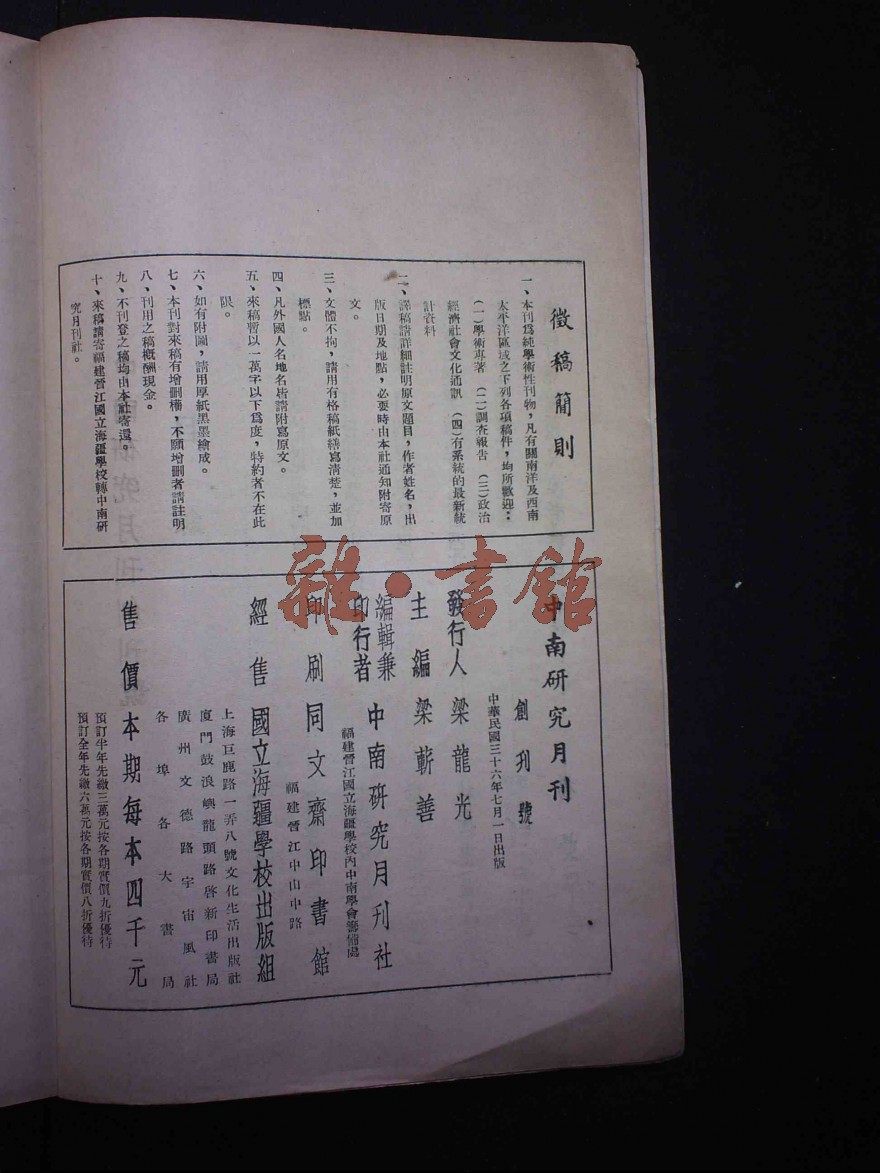 徵稿簡則
一、本刊爲純學術性刊物，凡有關南洋及西南
太平洋區域之下列各項稿件，均所歡迎：
（一）學術專著　（二）調查報告　（三）政治
經濟社會文化通訊　（四）有系統的最新統
計資料
二、譯稿請詳細註明原文題目，作者姓名，出
版日期及地點，必要時由本社通知附寄原
文。
三、文體不拘，請用有格稿紙繕寫清楚，並加
標點。
四、凡外國人名地名皆請附寫原文。
五、來稿暫以一萬字以下爲度，特約者不在此
限。
六、如有附圖，請用厚紙黑墨繪成。
七、本刊對來稿有增刪權，不願增刪者請註明
八、刊用之稿概酬現金。
九、不刊登之稿均由本社寄還。
十、來稿請寄福建晉江國立海疆學校轉中南研
究月刊社。
中南研究月刊
創刊號
中華民國三十六年七月一日出版
發行人　梁龍光
主編　梁蘄善
編輯兼印行者　中南研究月刊社
福建晉江國立海疆學校內中南學會籌備處
印刷　同文齋印書館
福建晉江中山中路
經售　國立海疆學校出版組
上海巨鹿路一弄八號文化生活出版社
廈門鼓浪嶼龍頭路啓新印書局
廣州文德路宇宙風社
各埠各大書局
售價　本期每本四千元
預訂半年先繳三萬元按各期實價九折優待
預訂全年先繳六萬元按各期實價八折優待
雜·書館